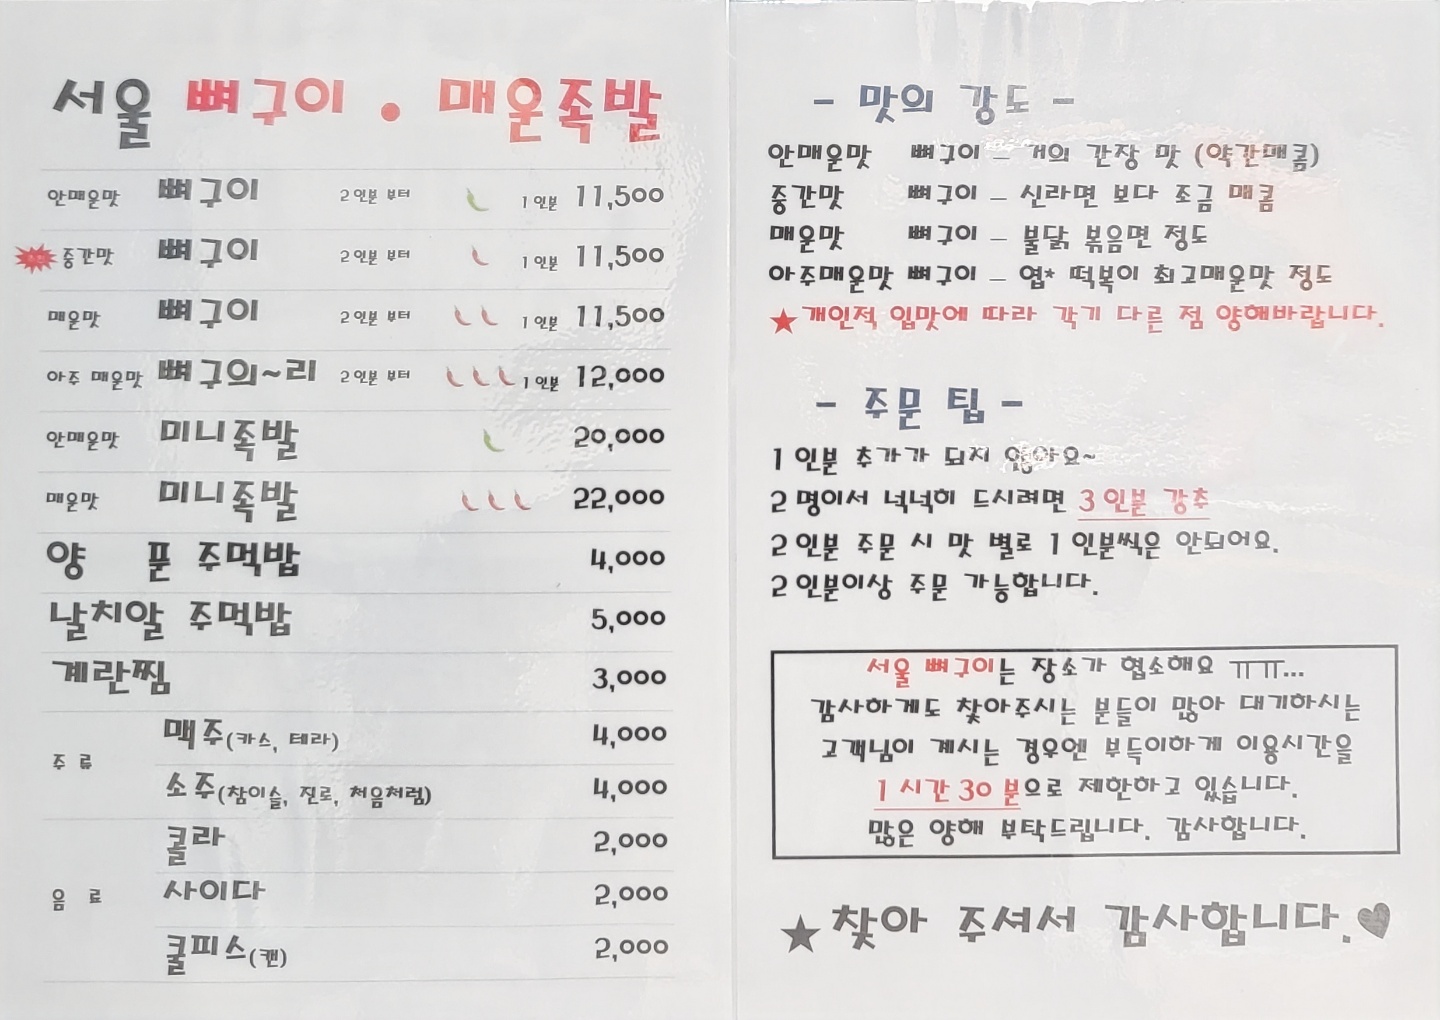 서울 뼈구이 • 매운족발
안매운맛 뼈구이 2인분 부터 1인분 11,500
중간맛 뼈구이 2인분 부터 1인분 11,500
매운맛 뼈구이 2인분 부터 1인분 11,500
아주 매운맛 뼈구의~리 2인분 부터 1인분 12,000
안매운맛 미니족발 20,000
매운맛 미니족발 22,000
양 푼 주먹밥 4,000
날치알 주먹밥 5,000
계란찜 3,000
주 류
맥주(카스, 테라) 4,000
소주(참이슬, 진로, 처음처럼) 4,000
음 료
콜라 2,000
사이다 2,000
쿨피스(캔) 2,000
- 맛의 강도 -
안매운맛 뼈구이 - 거의 간장 맛 (약간매콤)
중간맛 뼈구이 - 신라면 보다 조금 매콤
매운맛 뼈구이 - 불닭 볶음면 정도
아주매운맛 뼈구이 - 엽* 떡볶이 최고매운맛 정도
★개인적 입맛에 따라 각기 다른 점 양해바랍니다.
- 주문 팁 -
1인분 추가가 되지 않아요~
2명이서 넉넉히 드시려면 3인분 강추
2인분 주문 시 맛 별로 1인분씩은 안되어요.
2인분이상 주문 가능합니다.
서울 뼈구이는 장소가 협소해요 ㅠㅠ...
감사하게도 찾아주시는 분들이 많아 대기하시는
고객님이 계시는 경우엔 부득이하게 이용시간을
1시간 30분으로 제한하고 있습니다.
많은 양해 부탁드립니다. 감사합니다.
★찾아 주셔서 감사합니다.♥